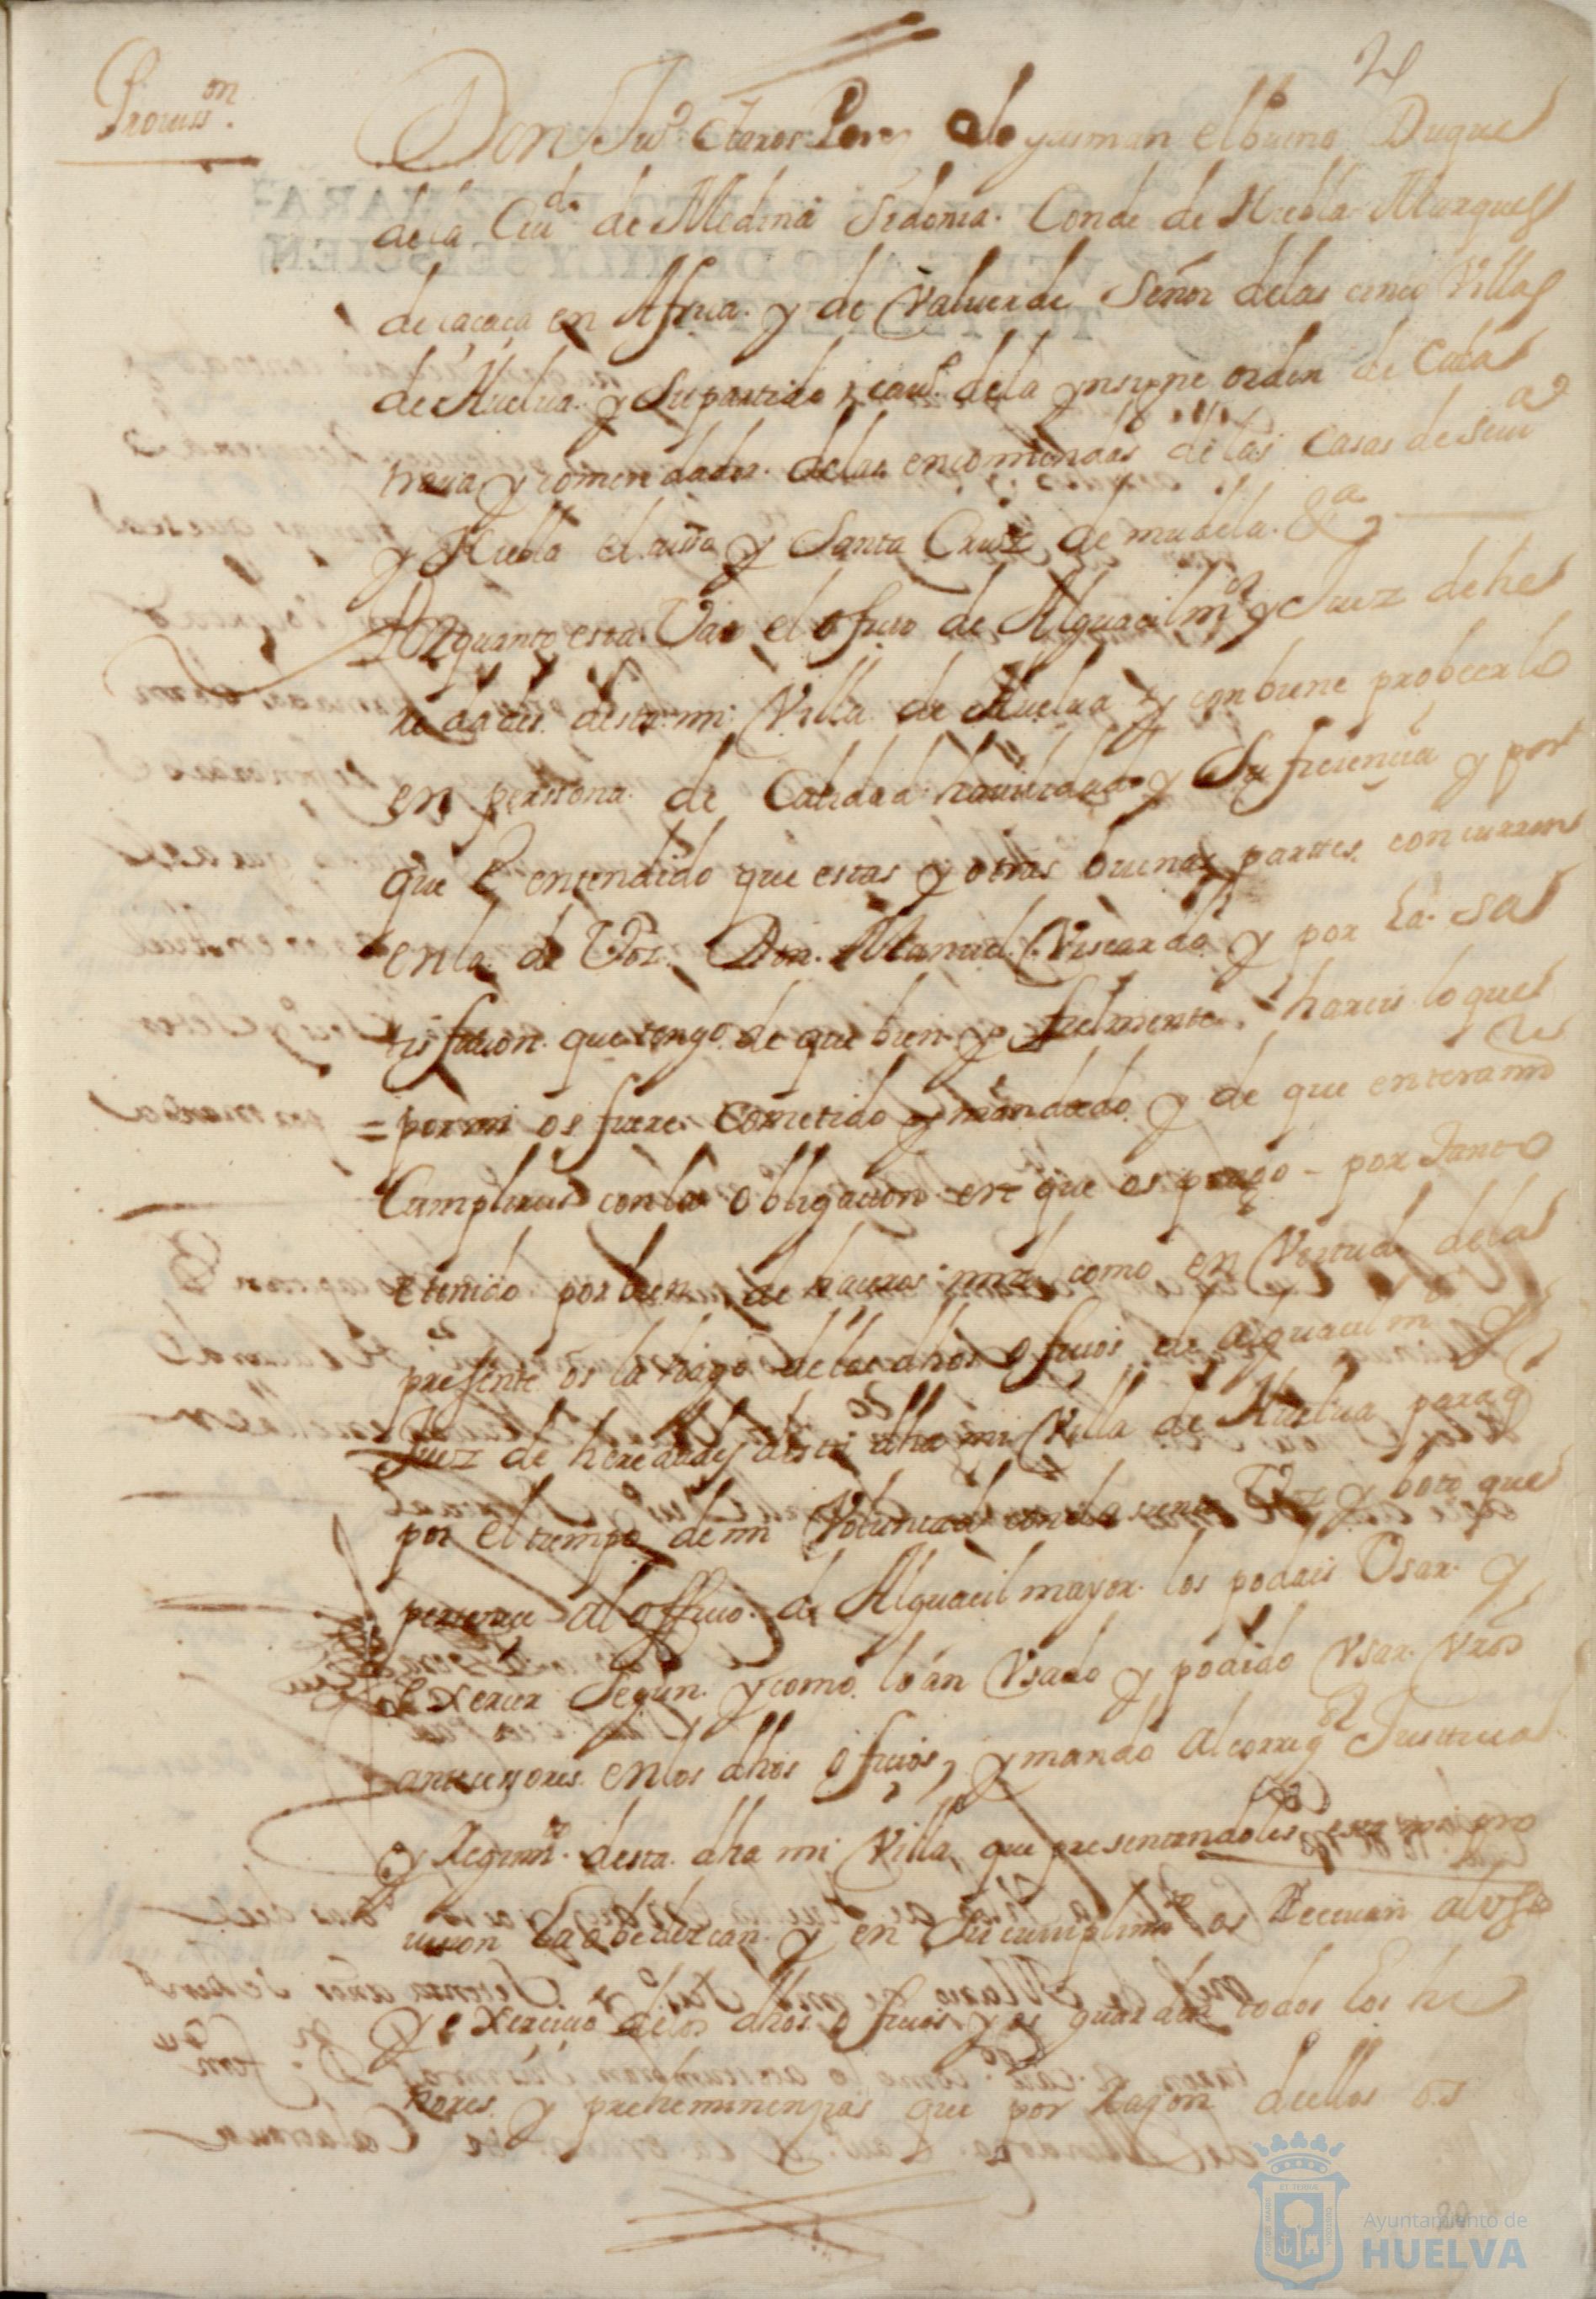 21
Provission
Don Juº Claros Perez de gusman elbueno Duque
dela Ciud. de Medina Sidonia. Conde de Niebla Marques
de caçaça en Africa. y de Valuerde Señor delas cinco Villas
de Huelua. y Su partido, cauº. dela ynsigne orden de Cala
traua y comendador. delas encomiendas delas Casas de Seuª
y Niebla el uiso y Santa Cruz de mudela. &ª
Por quanto esta Vaco el ofiçio de Alguacil mºr y Juez de he
redades desta mi Villa de Huelua y conbiene probeerlo
en perssona de Calidad hauilidad y Suficiencia y por
que E entendido que estas y otras buenas parttes concurren
en la de Vos Don Manuel Viscardo y por la sa
tisfacion que tengo de que bien y fielmente hareis lo que
= por mi os fuere Cometido y mandado y de que enteramte
Cumplireis con la obligacion en que os pongo – por Tanto
E tenido por bien de haceros mrd como en Virtud dela
pressente os la hago delos dhos ofiçios de alguacil mºr y
Juez de heredades desta dha mi Villa de Huelua para q
por el tiempo de mi Voluntad con el asiento Voz y boto que
pertenece al offiçio de Alguacil mayor los podais Vsar y
Exercer Segun y como lo án Vsado y podido Vsar Vros
antecessores en los dhos ofiçios, y mando al corregºr Justticia
y Regimtº desta dha mi Villa que presentandoles esta mi pro
uission la obedezcan y en Su cumplimtº os Reciuan al vsso
y Exercicio delos dhos ofiçios y os guarden todos los ho
nores y preheminenzias que por Raçon de ellos os
Ayuntamiento de
HUELVA